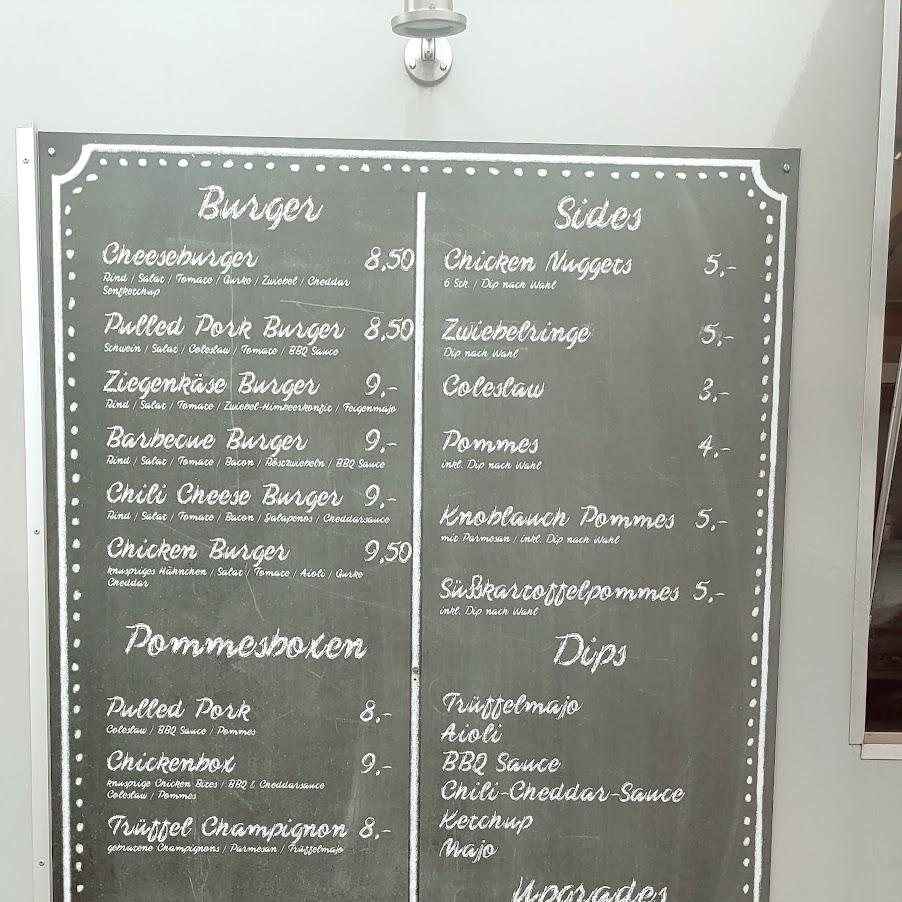 Burger
Cheeseburger 8,50
Rind / Salat / Tomate / Gurke / Zwiebel / Cheddar
Senfketchup
Pulled Pork Burger 8,50
Schwein / Salat / Coleslaw / Tomate / BBQ Sauce
Ziegenkäse Burger 9,-
Rind / Salat / Tomate / Zwiebel-Himbeerkonfit / Feigenmajo
Barbecue Burger 9,-
Rind / Salat / Tomate / Bacon / Röstzwiebeln / BBQ Sauce
Chili Cheese Burger 9,-
Rind / Salat / Tomate / Bacon / Jalapenos / Cheddarsauce
Chicken Burger 9,50
knuspriges Hähnchen / Salat / Tomate / Aioli / Gurke
Cheddar
Pommesboxen
Pulled Pork 8,-
Coleslaw / BBQ Sauce / Pommes
Chickenbox 9,-
knusprige Chicken Bites / BBQ & Cheddarsauce
Coleslaw / Pommes
Trüffel Champignon 8,-
gebratene Champignons / Parmesan / Trüffelmajo
Sides
Chicken Nuggets 5,-
6 Stk. / Dip nach Wahl
Zwiebelringe 5,-
Dip nach Wahl
Coleslaw 3,-
Pommes 4,-
inkl. Dip nach Wahl
Knoblauch Pommes 5,-
mit Parmesan / inkl. Dip nach Wahl
Süßkartoffelpommes 5,-
inkl. Dip nach Wahl
Dips
Trüffelmajo
Aioli
BBQ Sauce
Chili-Cheddar-Sauce
Ketchup
Majo
Upgrades